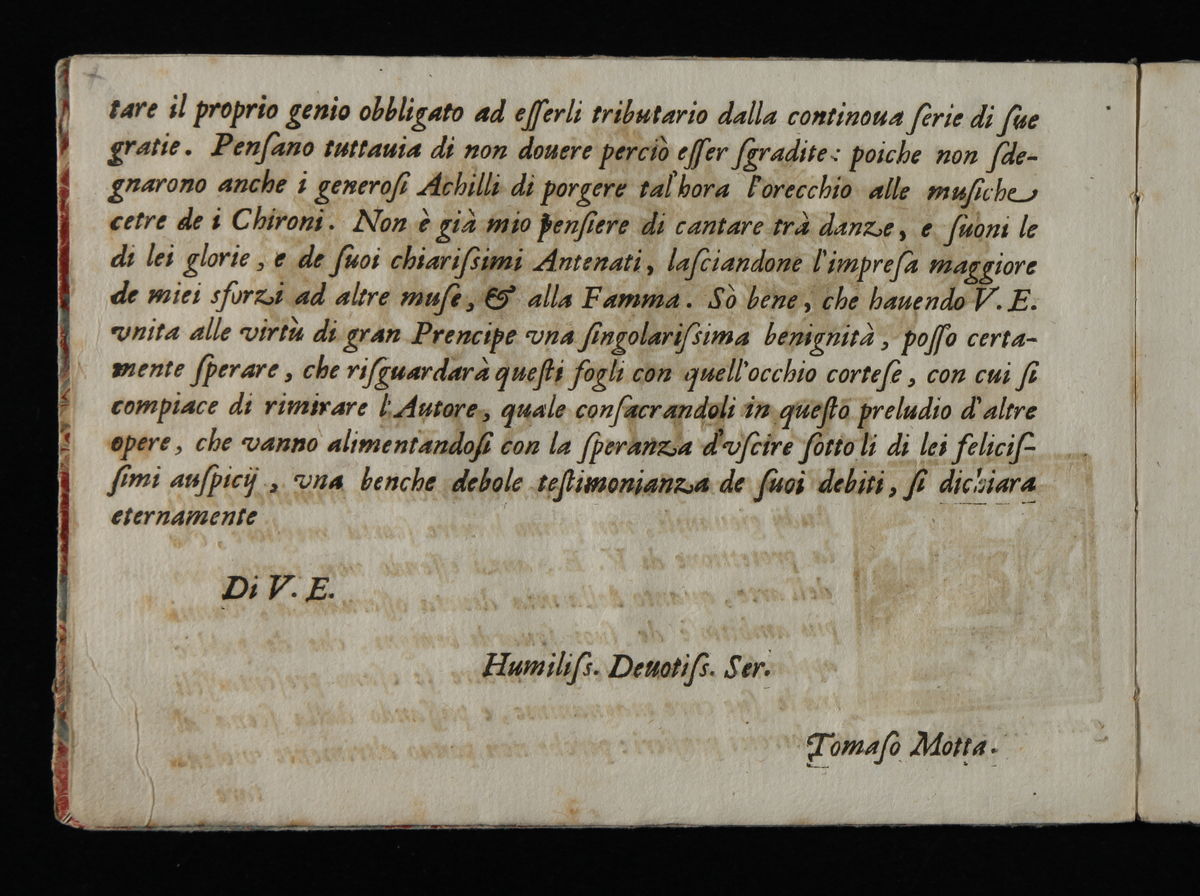 tare il proprio genio obbligato ad eſſerli tributario dalla continoua ſerie di ſue
gratie. Penſano tuttauia di non douere perciò eſſer ſgradite: poiche non ſde-
gnarono anche i generoſi Achilli di porgere tal'hora l'orecchio alle muſiche
cetre de i Chironi. Non è già mio penſiere di cantare trà danze, e ſuoni le
di lei glorie, e de ſuoi chiariſſimi Antenati, laſciandone l'impreſa maggiore
de miei sforzi ad altre muſe, & alla Famma. Sò bene, che hauendo V. E.
vnita alle virtù di gran Prencipe vna ſingolariſſima benignità, poſſo certa-
mente ſperare, che riſguardarà queſti fogli con quell'occhio corteſe, con cui ſi
compiace di rimirare l'Autore, quale conſacrandoli in queſto preludio d'altre
opere, che vanno alimentandoſi con la ſperanza d'vſcire ſotto li di lei feliciſ-
ſimi auſpicij, vna benche debole teſtimonianza de ſuoi debiti, ſi dichiara
eternamente
Di V. E.
Humiliſs. Deuotiſs. Ser.
Tomaſo Motta.